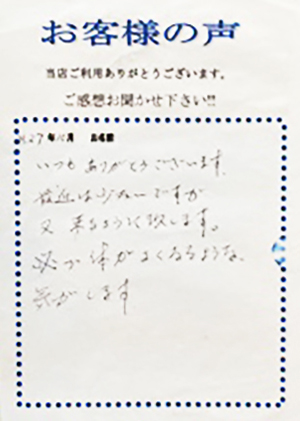 お客様の声
当店ご利用ありがとうございます。
ご感想お聞かせ下さい!!
27年 月 お名前
いつもありがとうございます。
最近は ですが
又 来るように致します。
必ず体がよくなるような、
気がします